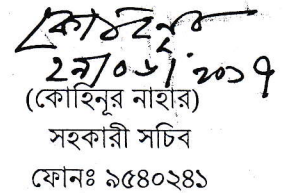 কোহিনূর
২৯/০৬/২০১৭
(কোহিনূর নাহার)
সহকারী সচিব
ফোনঃ ৯৫৪০২৪১